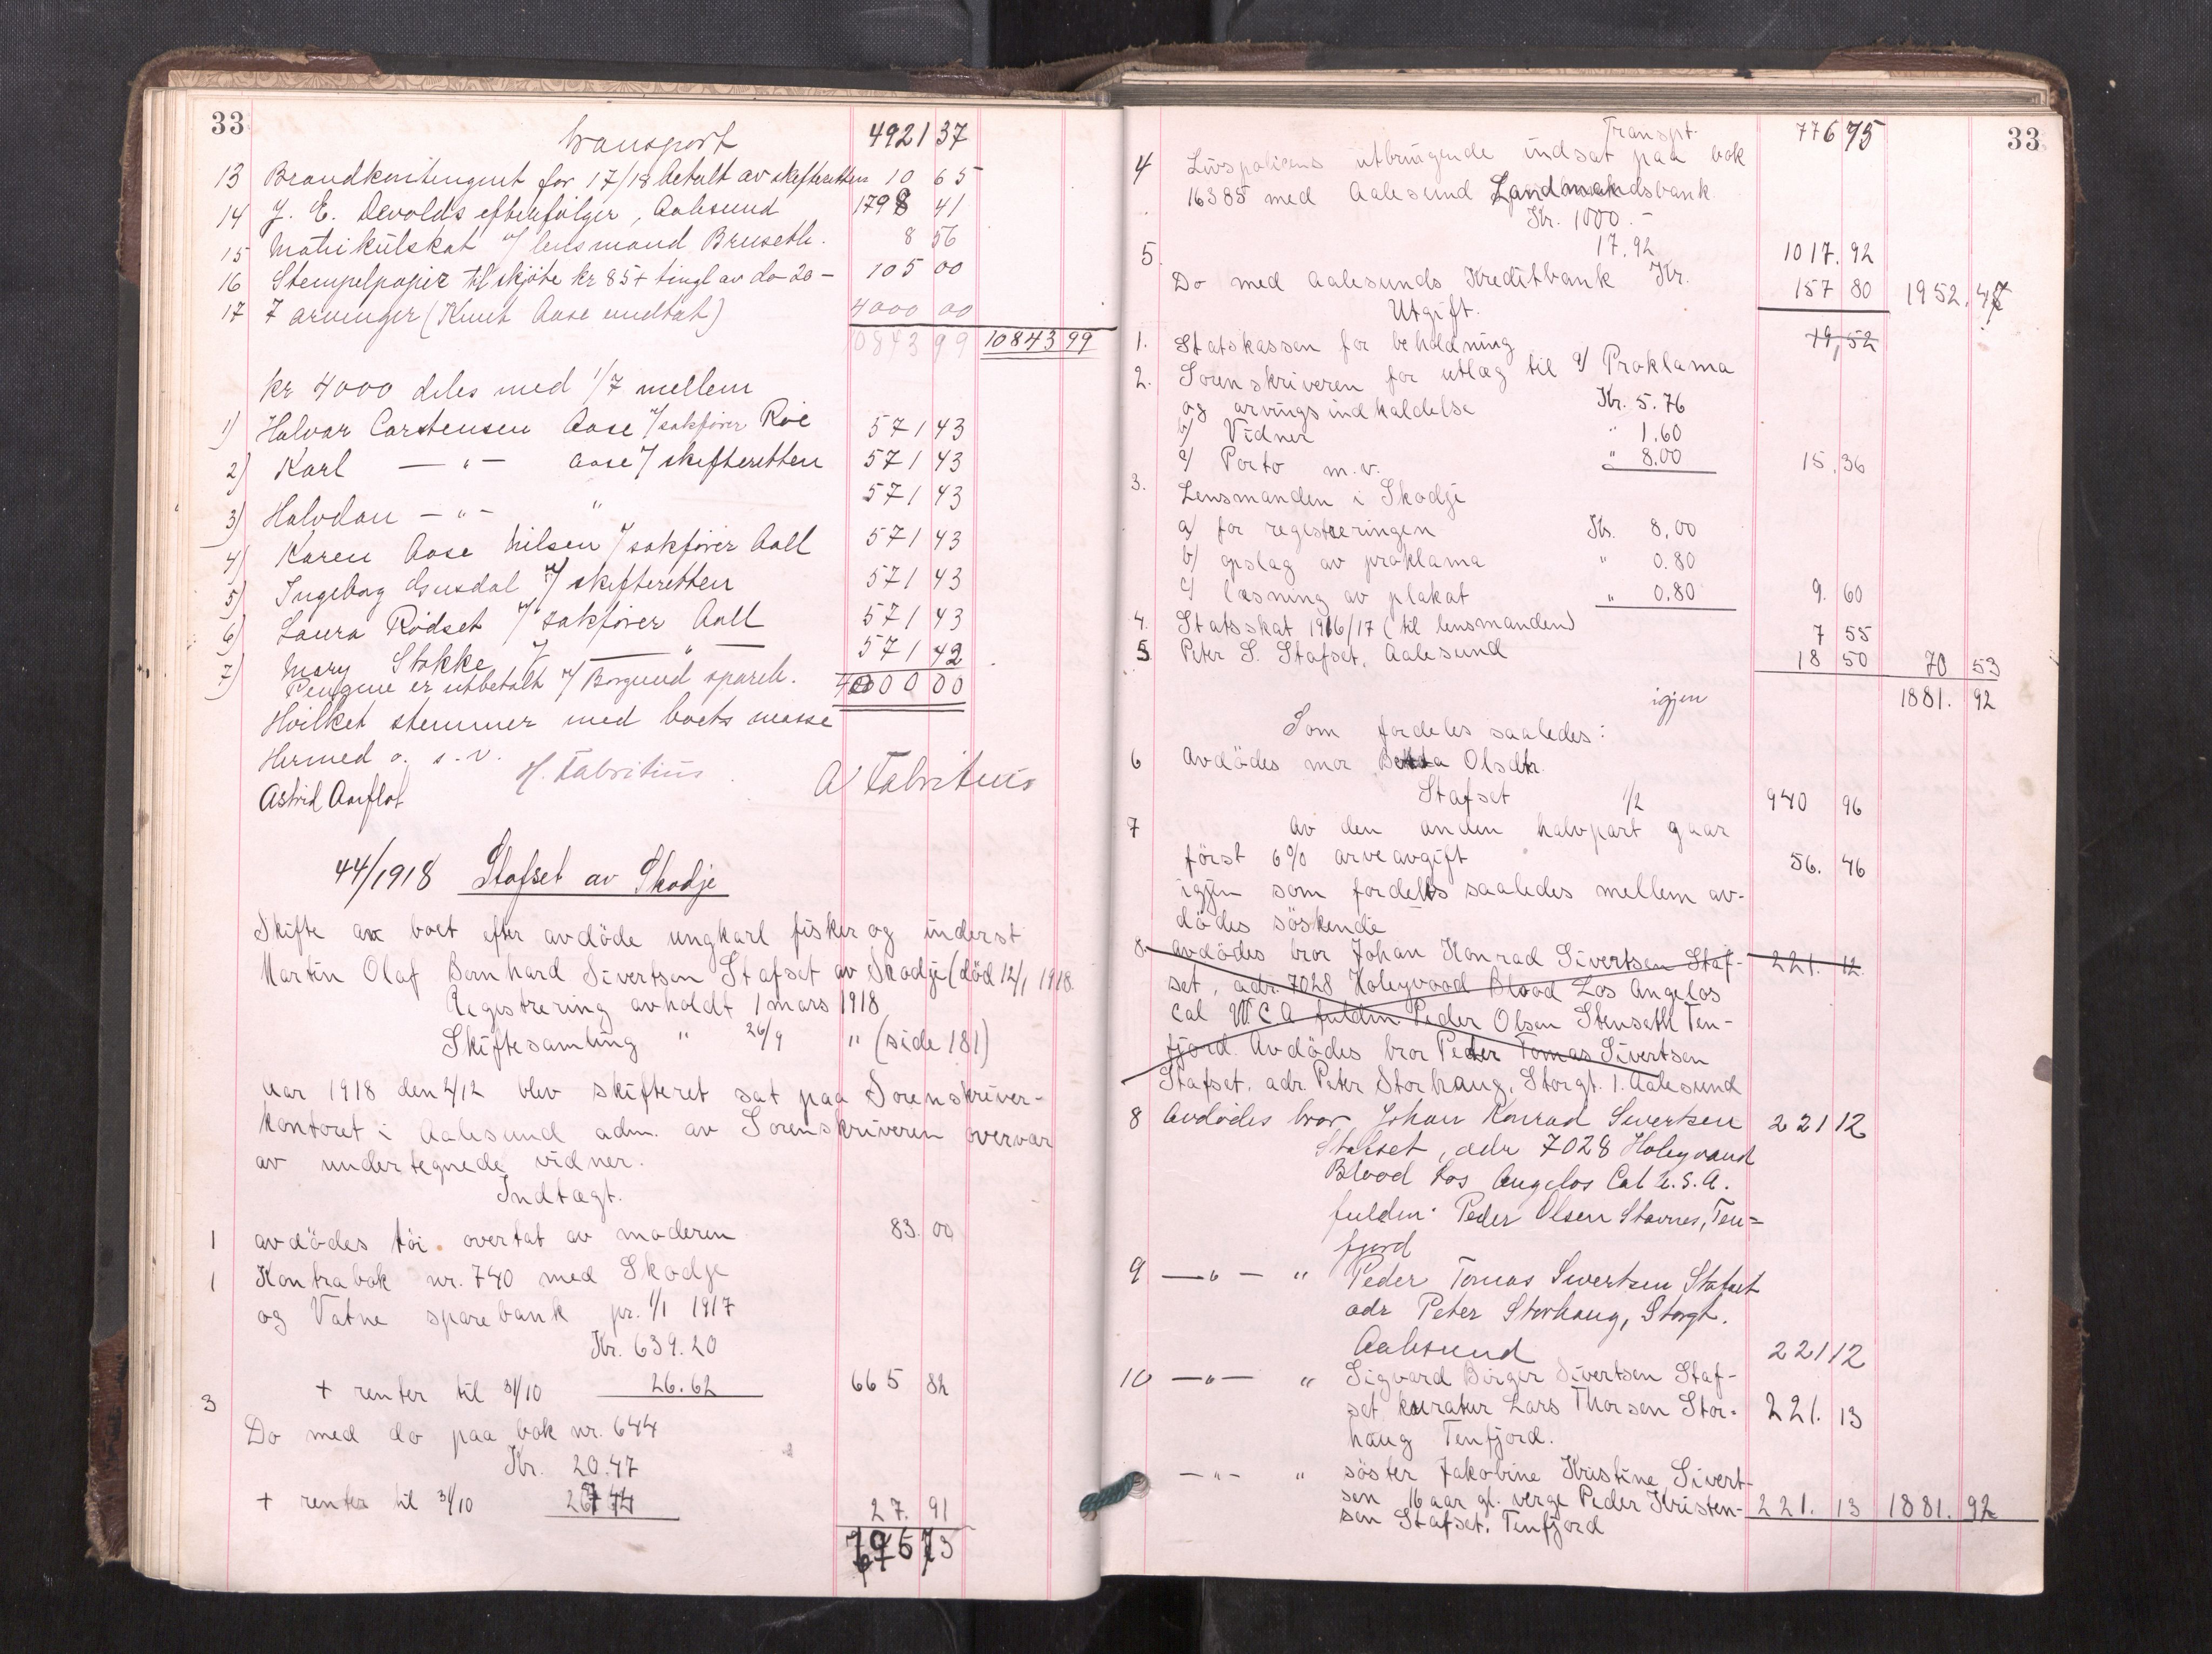 33
transport 4921 37
13 Brandkontingent for 17/18 betalt av skifteretten 10 65
14 J. E. Devolds efterfølger, Aalesund 1798 41
15 Matrikulskat v/ lensmand Bruseth. 8 56
16 Stempelpapir til skjøte kr 85 + tingl av do 20 – 105 00
17 7 arvinger (Knut Aase undtat) 4000 00
10843 99 10843 99
kr 4000 deles med 1/7 mellem
1) Halvar Carstensen Aase v/ sakfører Roe 571 43
2) Karl — " — Aase v/ skifteretten 571 43
3) Halvdan — " — " 571 43
4) Karen Aase Nilsen v/ sakfører Aall 571 43
5) Ingeborg Gusdal v/ skifteretten 571 43
6) Laura Rødset v/ sakfører Aall 571 43
7) Mary Stokke v/ — " — 571 42
Pengene er utbetalt v/ Borgund spareb. 4000 00
Hvilket stemmer med boets masse
Hermed o. s. v.
H. Fabritius. A Fabritius
Astrid Aarflot
44/1918 Stafset av Skodje
Skifte av boet efter avdöde ungkarl fisker og inderst
Martin Olaf Bernhard Sivertsen Stafset av Skodje (död 12/1 1918.
Registrering avholdt 1 mars 1918
Skiftesamling " 26/9 " (side 181)
Aar 1918 den 2/12 blev skifteret sat paa Sorenskriver-
kontoret i Aalesund adm. av Sorenskriveren overvær
av undertegnede vidner.
Indtægt.
1 avdödes töi overtat av moderen 83. 00
1 Kontrabok nr. 740 med Skodje
og Vatne sparebank pr. 1/1 1917
Kr. 639.20
+ renter til 31/10 26.62 665 82
3
Do med do paa bok nr. 644
Kr. 20.47
+ renter til 31/10 7.44 27. 91
776 73
33
Transpt. 776 75
4 Livspolicens utbringende indsat paa bok
16385 med Aalesund Landmandsbank
Kr. 1000.–
17.92 1017. 92
5.
Do med Aalesunds Kreditbank Kr. 157 80 1952. 47
Utgift.
1. Statskassen for beholdning 19,52
2. Sorenskriveren for utlæg til a/ Proklama
og arvingsindkaldelse Kr. 5.76
b/ Vidner " 1.60
c/ Porto m.v. " 8.00 15. 36
3. Lensmanden i Skodje
a/ for registreringen Kr. 8.00
b/ opslag av proklama " 0.80
c/ læsning av plakat " 0.80 9. 60
4. Statsskat 1916/17 (til lensmanden) 7 55
5 Peter S. Stafset, Aalesund 18 50 70 53
igjen 1881. 92
Som fordeles saaledes:
6 Avdödes mor Olsdtr.
Stafset 1/2 940 96
7 Av den anden halvpart gaar
först 6% arveavgift 56. 46
igjen som fordeles saaledes mellem av-
dödes söskende
8. Avdödes bror Johan Konrad Sivertsen Staf- 221. 12.
set, adr. 7028 Holeyvood Blood Los Angelos
Cal U.C.A fuldm Peder Olsen Stenseth Ten-
fjord. Avdödes bror Peder Tomas Sivertsen
Stafset, adr. Peter Storhaug, Storgt. 1. Aalesund
8 Avdødes bror Johan Konrad Sivertsen 221 12
Stafset, adr 7028 Holeyvaud
Blood Los Angelos Cal U.S.A.
fuldm: Peder Olsen Stavnes, Ten=
fjord
9 — " — " Peder Tomas Sivertsen Stafset
adr Peter Storhaug, Storgt.
Aalesund 221 12
10 — " — " Sigvard Birger Sivertsen Staf-
set kurator Lars Thorsen Stor- 221. 13
haug Tenfjord.
— " — " söster Jakobine Kristine Sivert-
sen 16 aar gl. verge Peder Kristen- 221. 13 1881. 92
sen Stafset, Tenfjord